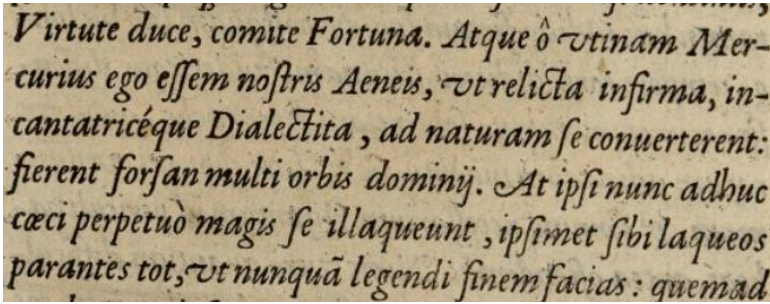 Virtute duce, comite Fortuna. Atque ô vtinam Mer-
curius ego eſſem noſtris Aeneis, vt relicta infirma, in-
cantatricéque Dialectita, ad naturam ſe conuerterent:
fierent forſan multi orbis dominij. At ipſi nunc adhuc
cœci perpetuò magis ſe illaqueunt, ipſimet ſibi laqueos
parantes tot, vt nunquã legendi finem facias: quemad